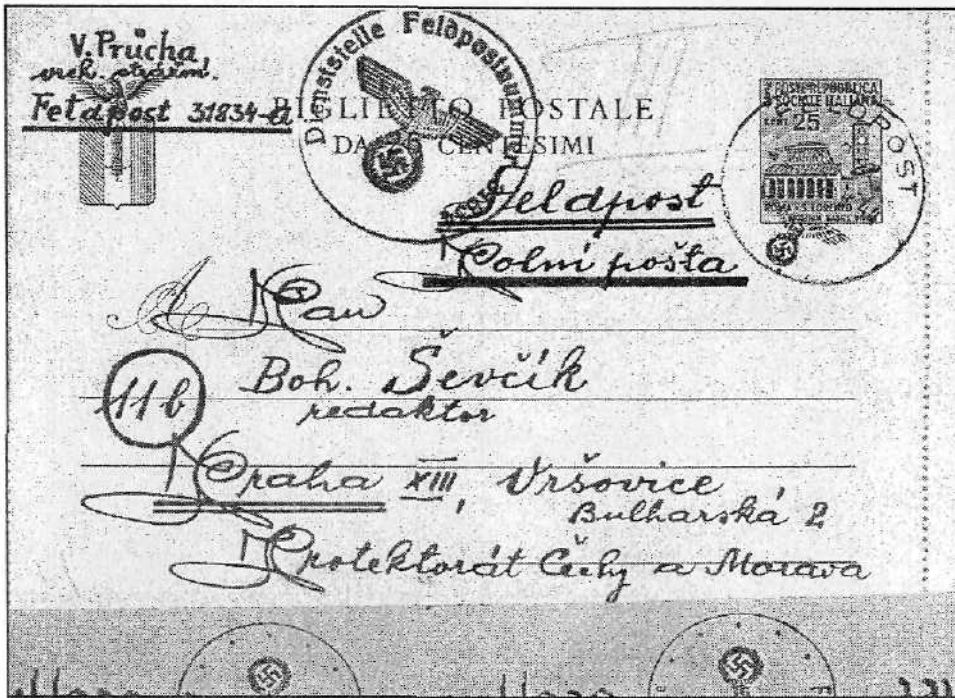 V. Průcha
vrch. strážm.
Feldpost 31834-a
Dienststelle Feldpostnummer
BIGLIETTO POSTALE
DA 25 CENTESIMI
POSTE REPUBBLICA
SOCIALE ITALIANA
CENT
25
FELDPOST
Feldpost
Polní pošta
Pan
Boh. Ševčík
redaktor
11b
Praha XIII, Vršovice
Bulharská 2
Protektorát Čechy a Morava